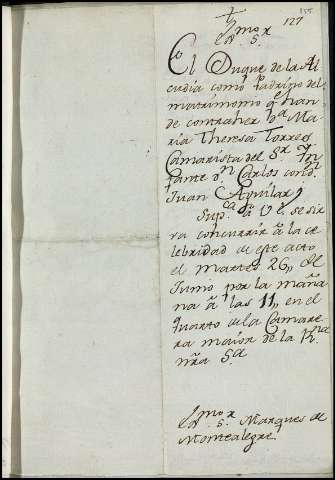 155
127
Ex.mo S.or
El Duque de la Al
cudia como Padrino del
matrimonio q.e han
de contraher D.a Ma
ria Theresa Torres
Camarista del S.r In
fante D.n Carlos con D.n
Juan Aguilar,
Sup.ca â V.E. se sir
va concurrir â la ce
lebridad de este acto
el martes 26,, de
Junio por la maña
na â las 11,, en el
quarto de la Camare
ra maior de la Rna
nra S.ra
Ex.mo S.or Marques de
Montealegre.